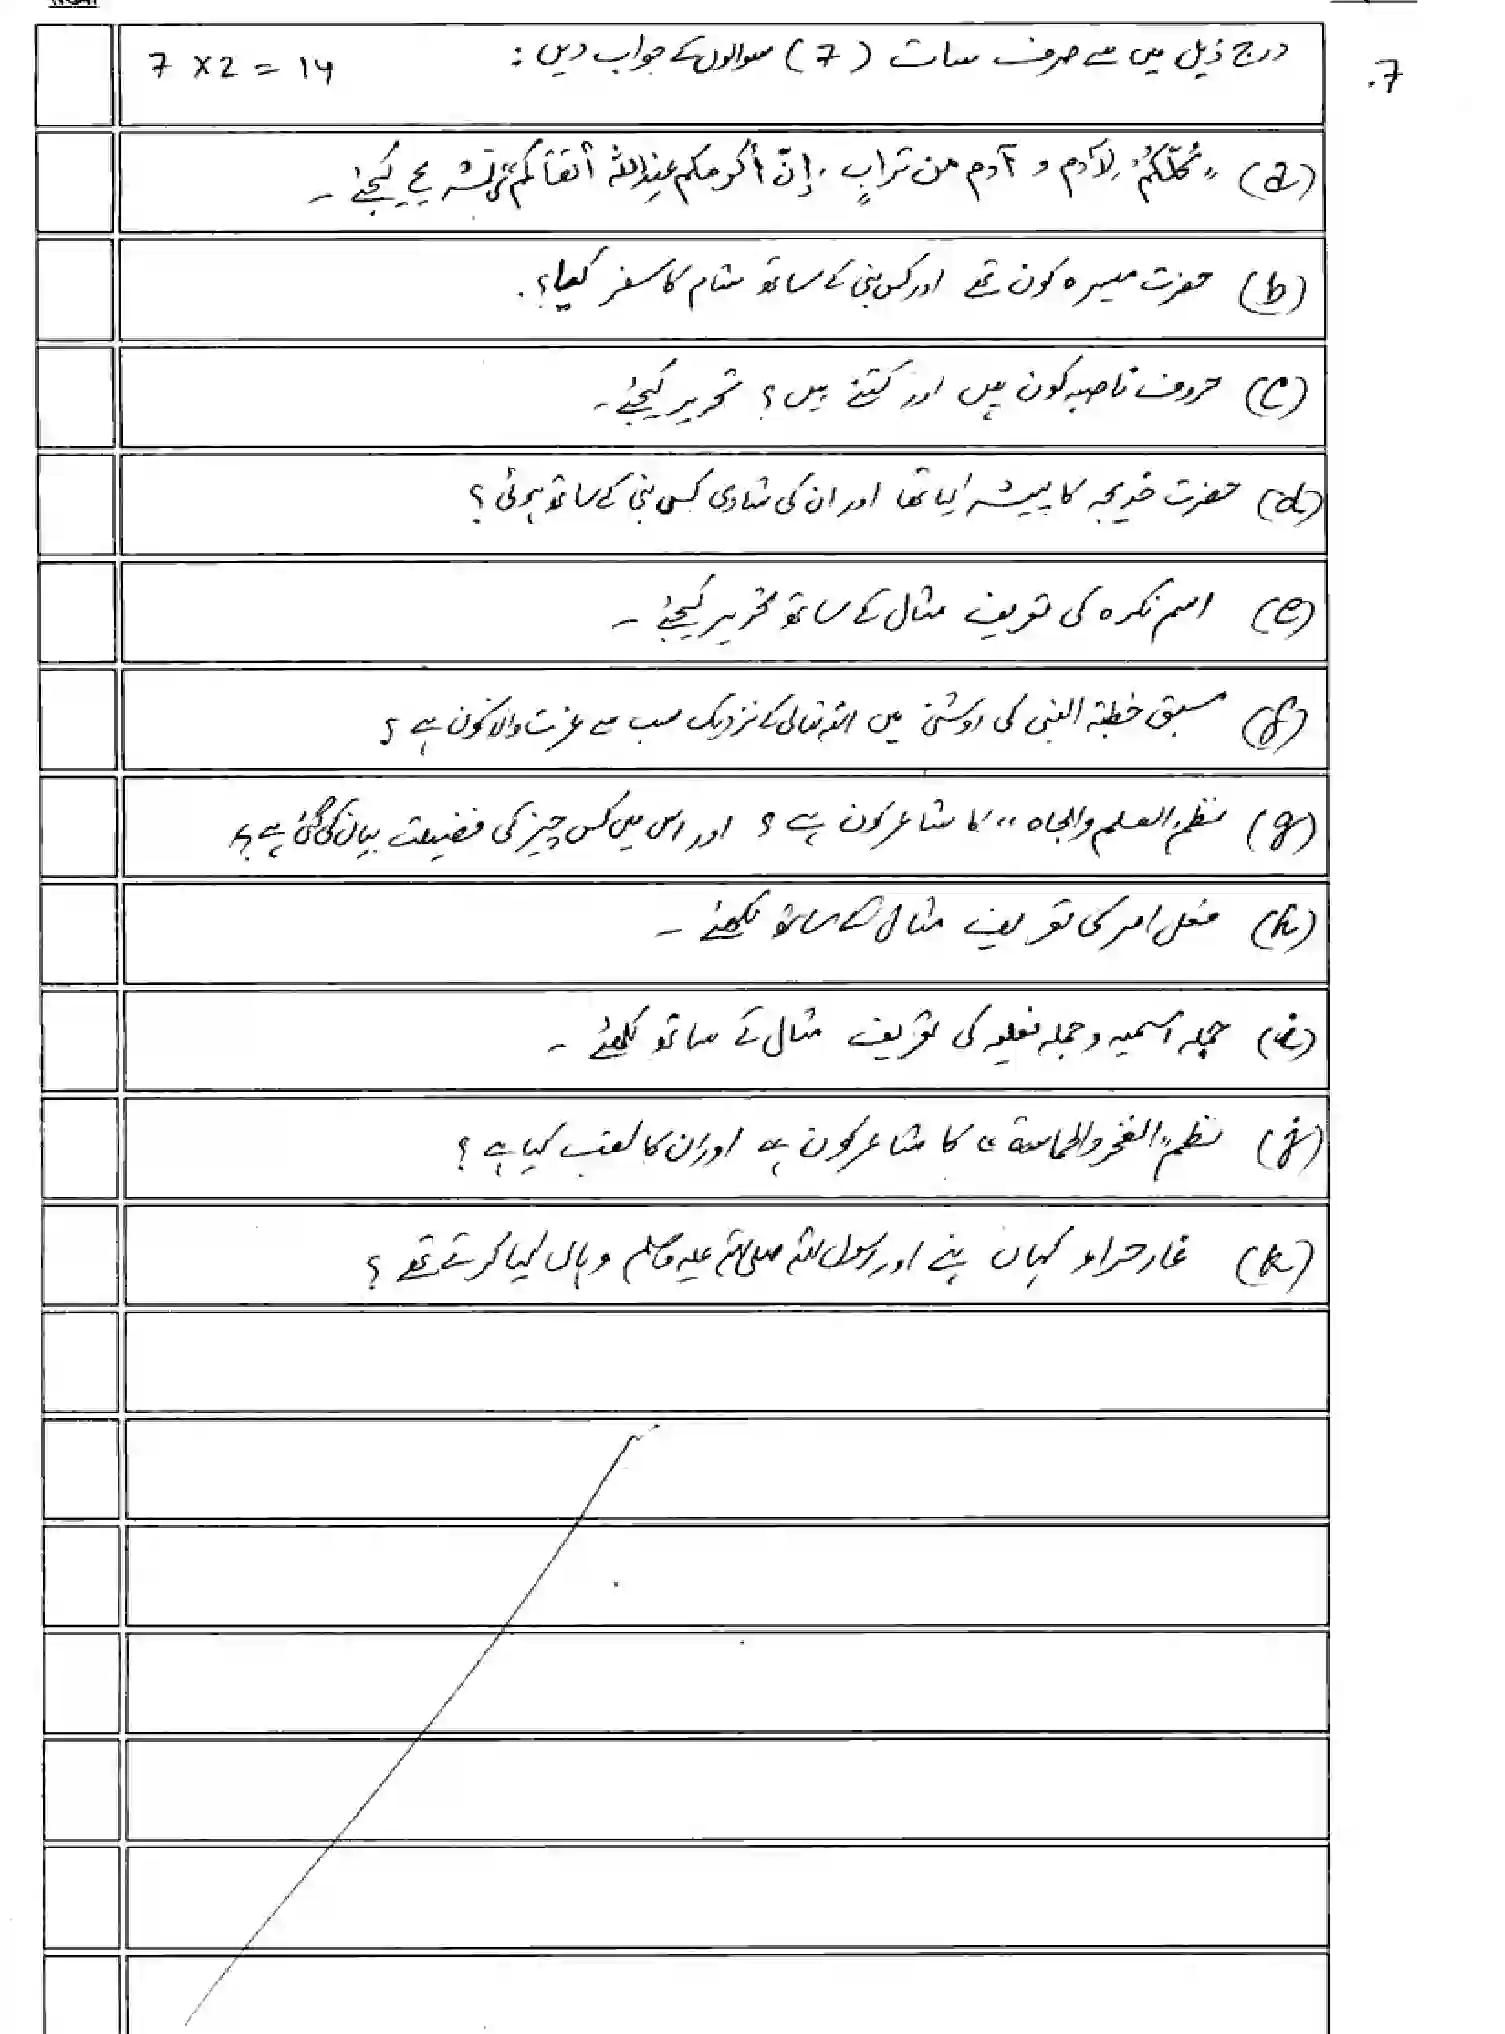 7. درج ذیل میں سے صرف سات (7) سوالوں کے جواب دیں: 7 x 2 = 14
(a) "کُلّکُم لِآدم و آدم من ترابٍ، إنّ أکرمکم عنداللہ أتقاکم" کی تشریح کیجئے ۔
(b) حضرت میسرہ کون تھے اور کس نبی کے ساتھ شام کا سفر کیا؟
(c) حروف ناصبہ کون ہیں اور کتنے ہیں؟ تحریر کیجئے ۔
(d) حضرت خدیجہ کا پیشہ کیا تھا اور ان کی شادی کس نبی کے ساتھ ہوئی؟
(e) اسم نکرہ کی تعریف مثال کے ساتھ تحریر کیجئے ۔
(f) سبق خطبۃ النبی کی روشنی میں اللہ تعالی کے نزدیک سب سے عزت والا کون ہے؟
(g) نظم "العلم والجاہ" کا شاعر کون ہے؟ اور اس میں کس چیز کی فضیلت بیان کی گئی ہے؟
(h) فعل امر کی تعریف مثال کے ساتھ لکھئے ۔
(i) جملہ اسمیہ و جملہ فعلیہ کی تعریف مثال کے ساتھ لکھئے ۔
(j) نظم "الفخر والحماسة" کا شاعر کون ہے اور ان کا لقب کیا ہے؟
(k) غار حراء کہاں ہے اور رسول اللہ صلی اللہ علیہ وسلم وہاں کیا کرتے تھے؟